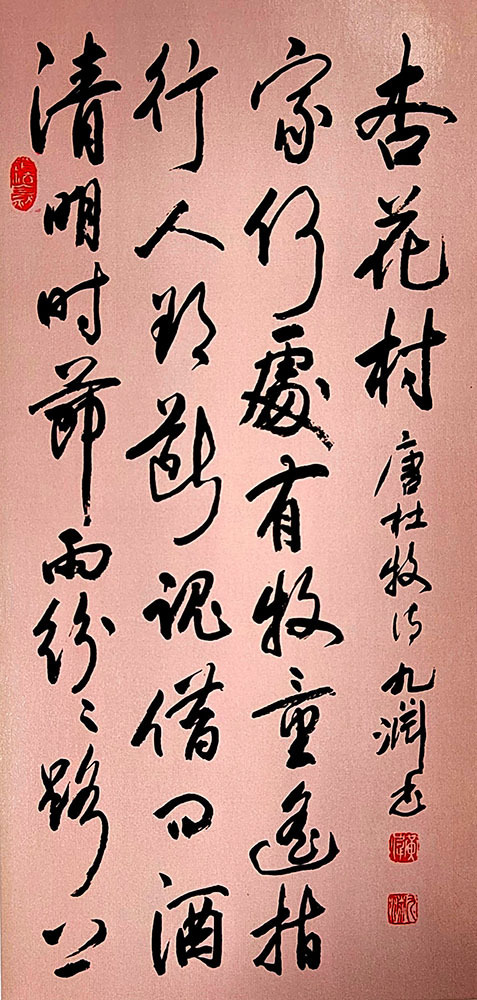 清明时節雨纷〻路上
行人欲断魂借问酒
家何處有牧童遥指
杏花村
唐杜牧诗九渊书